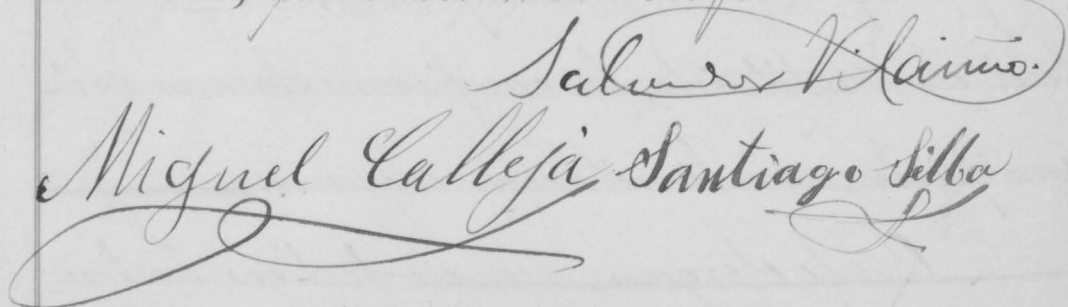 Salvador Vilariño.
Miguel Calleja Santiago Silba